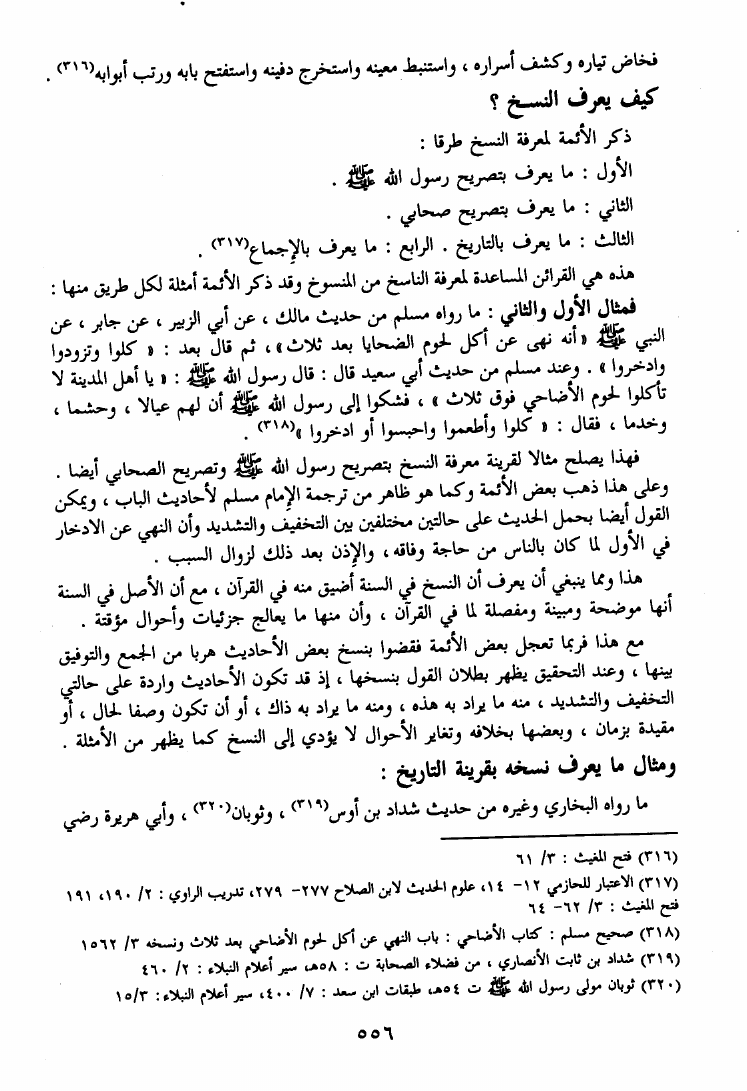 فخاض تياره وكشف أسراره ، واستنبط معينه واستخرج دفينه واستفتح بابه ورتب أبوابه(٣١٦) .
كيف يعرف النسخ ؟
ذكر الأئمة لمعرفة النسخ طرقا :
الأول : ما يعرف بتصريح رسول الله ﷺ .
الثاني : ما يعرف بتصريح صحابي .
الثالث : ما يعرف بالتاريخ . الرابع : ما يعرف بالإجماع(٣١٧) .
هذه هي القرائن المساعدة لمعرفة الناسخ من المنسوخ وقد ذكر الأئمة أمثلة لكل طريق منها :
فمثال الأول والثاني : ما رواه مسلم من حديث مالك ، عن أبي الزبير ، عن جابر ، عن
النبي ﷺ «أنه نهى عن أكل لحوم الضحايا بعد ثلاث» ، ثم قال بعد : « كلوا وتزودوا
وادخروا » . وعند مسلم من حديث أبي سعيد قال : قال رسول الله ﷺ : « يا أهل المدينة لا
تأكلوا لحوم الأضاحي فوق ثلاث » ، فشكوا إلى رسول الله ﷺ أن لهم عيالا ، وحشما ،
وخدما ، فقال : « كلوا وأطعموا واحبسوا أو ادخروا »(٣١٨) .
فهذا يصلح مثالا لقرينة معرفة النسخ بتصريح رسول الله ﷺ وتصريح الصحابي أيضا .
وعلى هذا ذهب بعض الأئمة وكما هو ظاهر من ترجمة الإمام مسلم لأحاديث الباب ، ويمكن
القول أيضا بحمل الحديث على حالتين مختلفين بين التخفيف والتشديد وأن النهي عن الادخار
في الأول لما كان بالناس من حاجة وفاقه ، والإذن بعد ذلك لزوال السبب .
هذا ومما ينبغي أن يعرف أن النسخ في السنة أضيق منه في القرآن ، مع أن الأصل في السنة
أنها موضحة ومبينة ومفصلة لما في القرآن ، وأن منها ما يعالج جزئيات وأحوال مؤقتة .
مع هذا فربما تعجل بعض الأئمة فقضوا بنسخ بعض الأحاديث هربا من الجمع والتوفيق
بينها ، وعند التحقيق يظهر بطلان القول بنسخها ، إذ قد تكون الأحاديث واردة على حالتي
التخفيف والتشديد ، منه ما يراد به هذه ، ومنه ما يراد به ذاك ، أو أن تكون وصفا لحال ، أو
مقيدة بزمان ، وبعضها بخلافه وتغاير الأحوال لا يؤدي إلى النسخ كما يظهر من الأمثلة .
ومثال ما يعرف نسخه بقرينة التاريخ :
ما رواه البخاري وغيره من حديث شداد بن أوس(٣١٩) ، وثوبان(٣٢٠) ، وأبي هريرة رضي
(٣١٦) فتح المغيث : ٣/ ٦١
(٣١٧) الاعتبار للحازمي ١٢- ١٤، علوم الحديث لابن الصلاح ٢٧٧- ٢٧٩، تدريب الراوي : ٢/ ١٩٠، ١٩١
فتح المغيث : ٣/ ٦٢- ٦٤
(٣١٨) صحيح مسلم : كتاب الأضاحي : باب النهي عن أكل لحوم الأضاحي بعد ثلاث ونسخه ٣/ ١٥٦٢
(٣١٩) شداد بن ثابت الأنصاري ، من فضلاء الصحابة ت : ٥٨هـ، سير أعلام النبلاء : ٢/ ٤٦٠
(٣٢٠) ثوبان مولى رسول الله ﷺ ت ٥٤هـ، طبقات ابن سعد : ٧/ ٤٠٠، سير أعلام النبلاء: ١٥/٣
٥٥٦